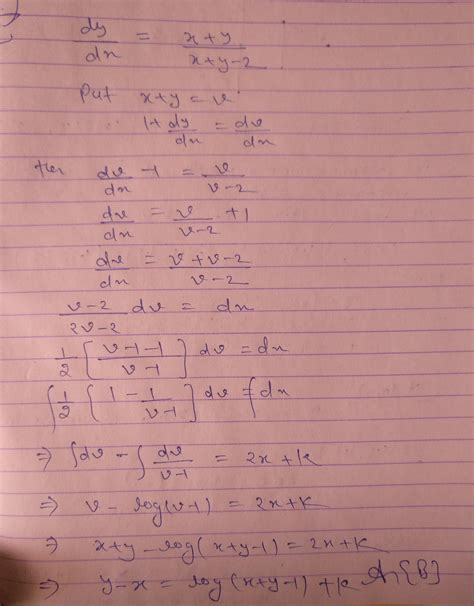 dy/dx = x+y/x+y-2
Put x+y = v
1+dy/dx = dv/dx
then dv/dx -1 = v/v-2
dv/dx = v/v-2 +1
dv/dx = v+v-2/v-2
v-2/2v-2 dv = dx
1/2 [v-1-1/v-1] dv = dx
∫1/2 [1-1/v-1] dv = ∫dx
⇒ ∫dv - ∫dv/v-1 = 2x+k
⇒ v - log(v-1) = 2x+k
⇒ x+y - log(x+y-1) = 2x+k
⇒ y-x = log(x+y-1)+k An {B}